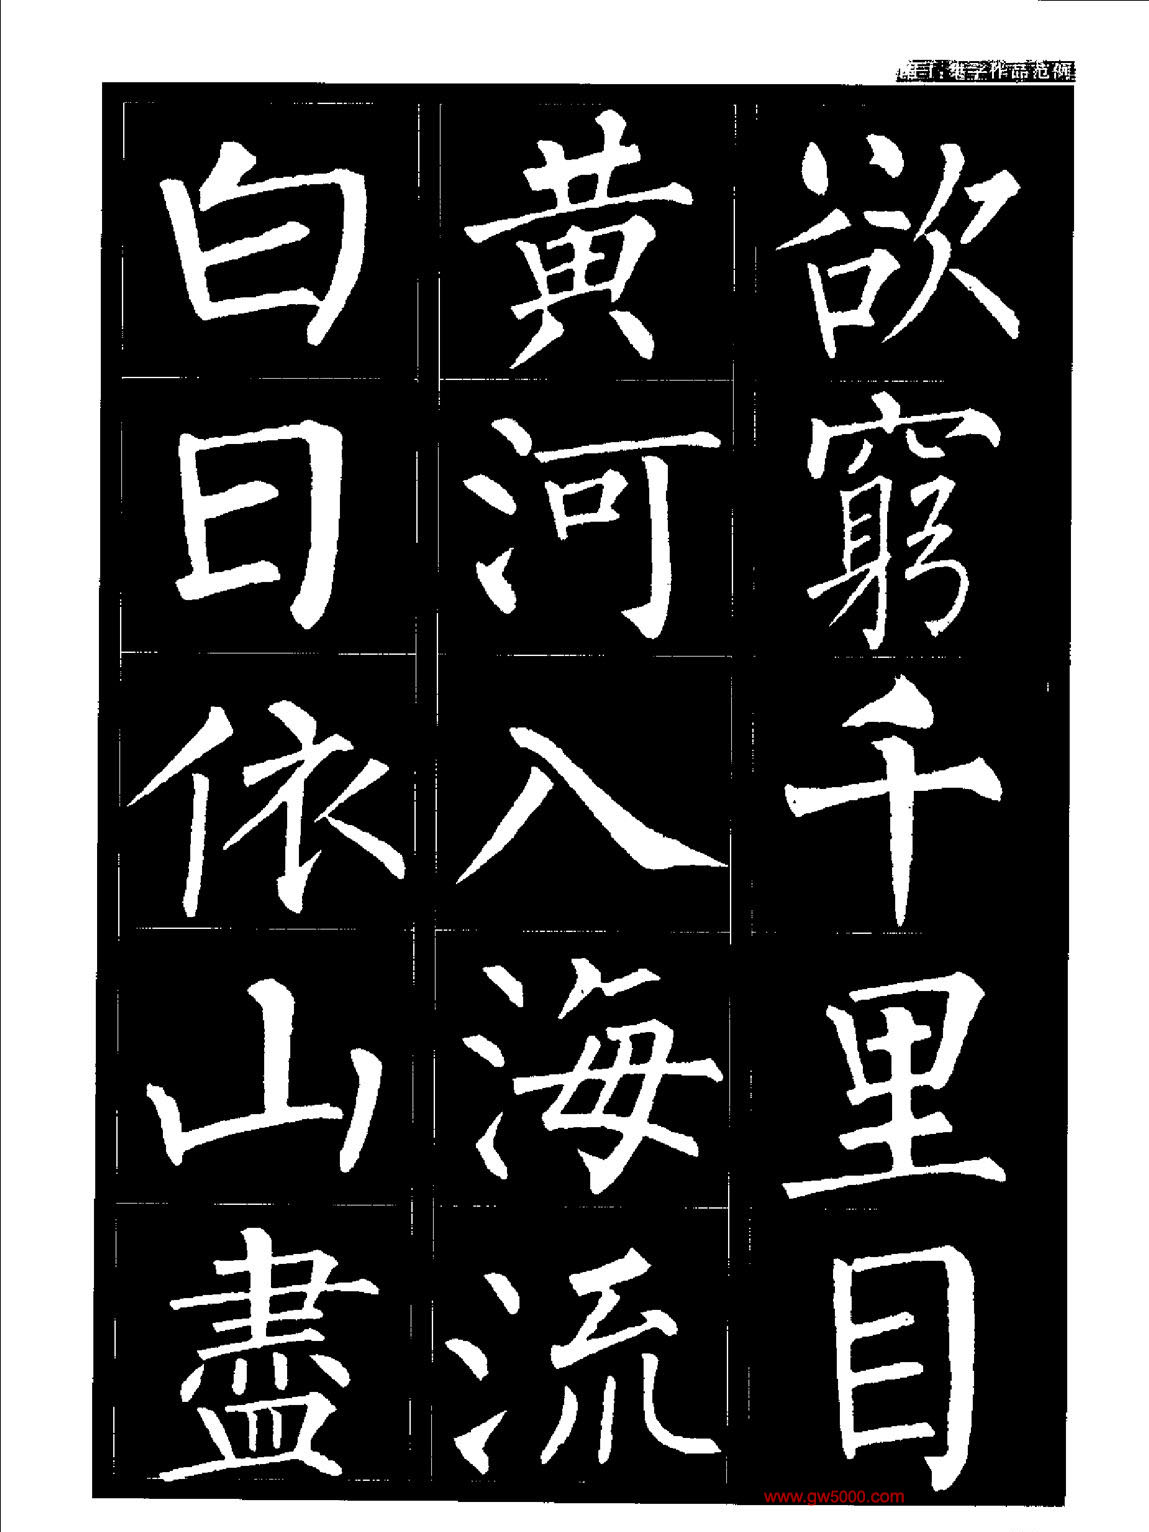 集字作品范例
白日依山盡
黄河入海流
欲窮千里目
www.gw5000.com